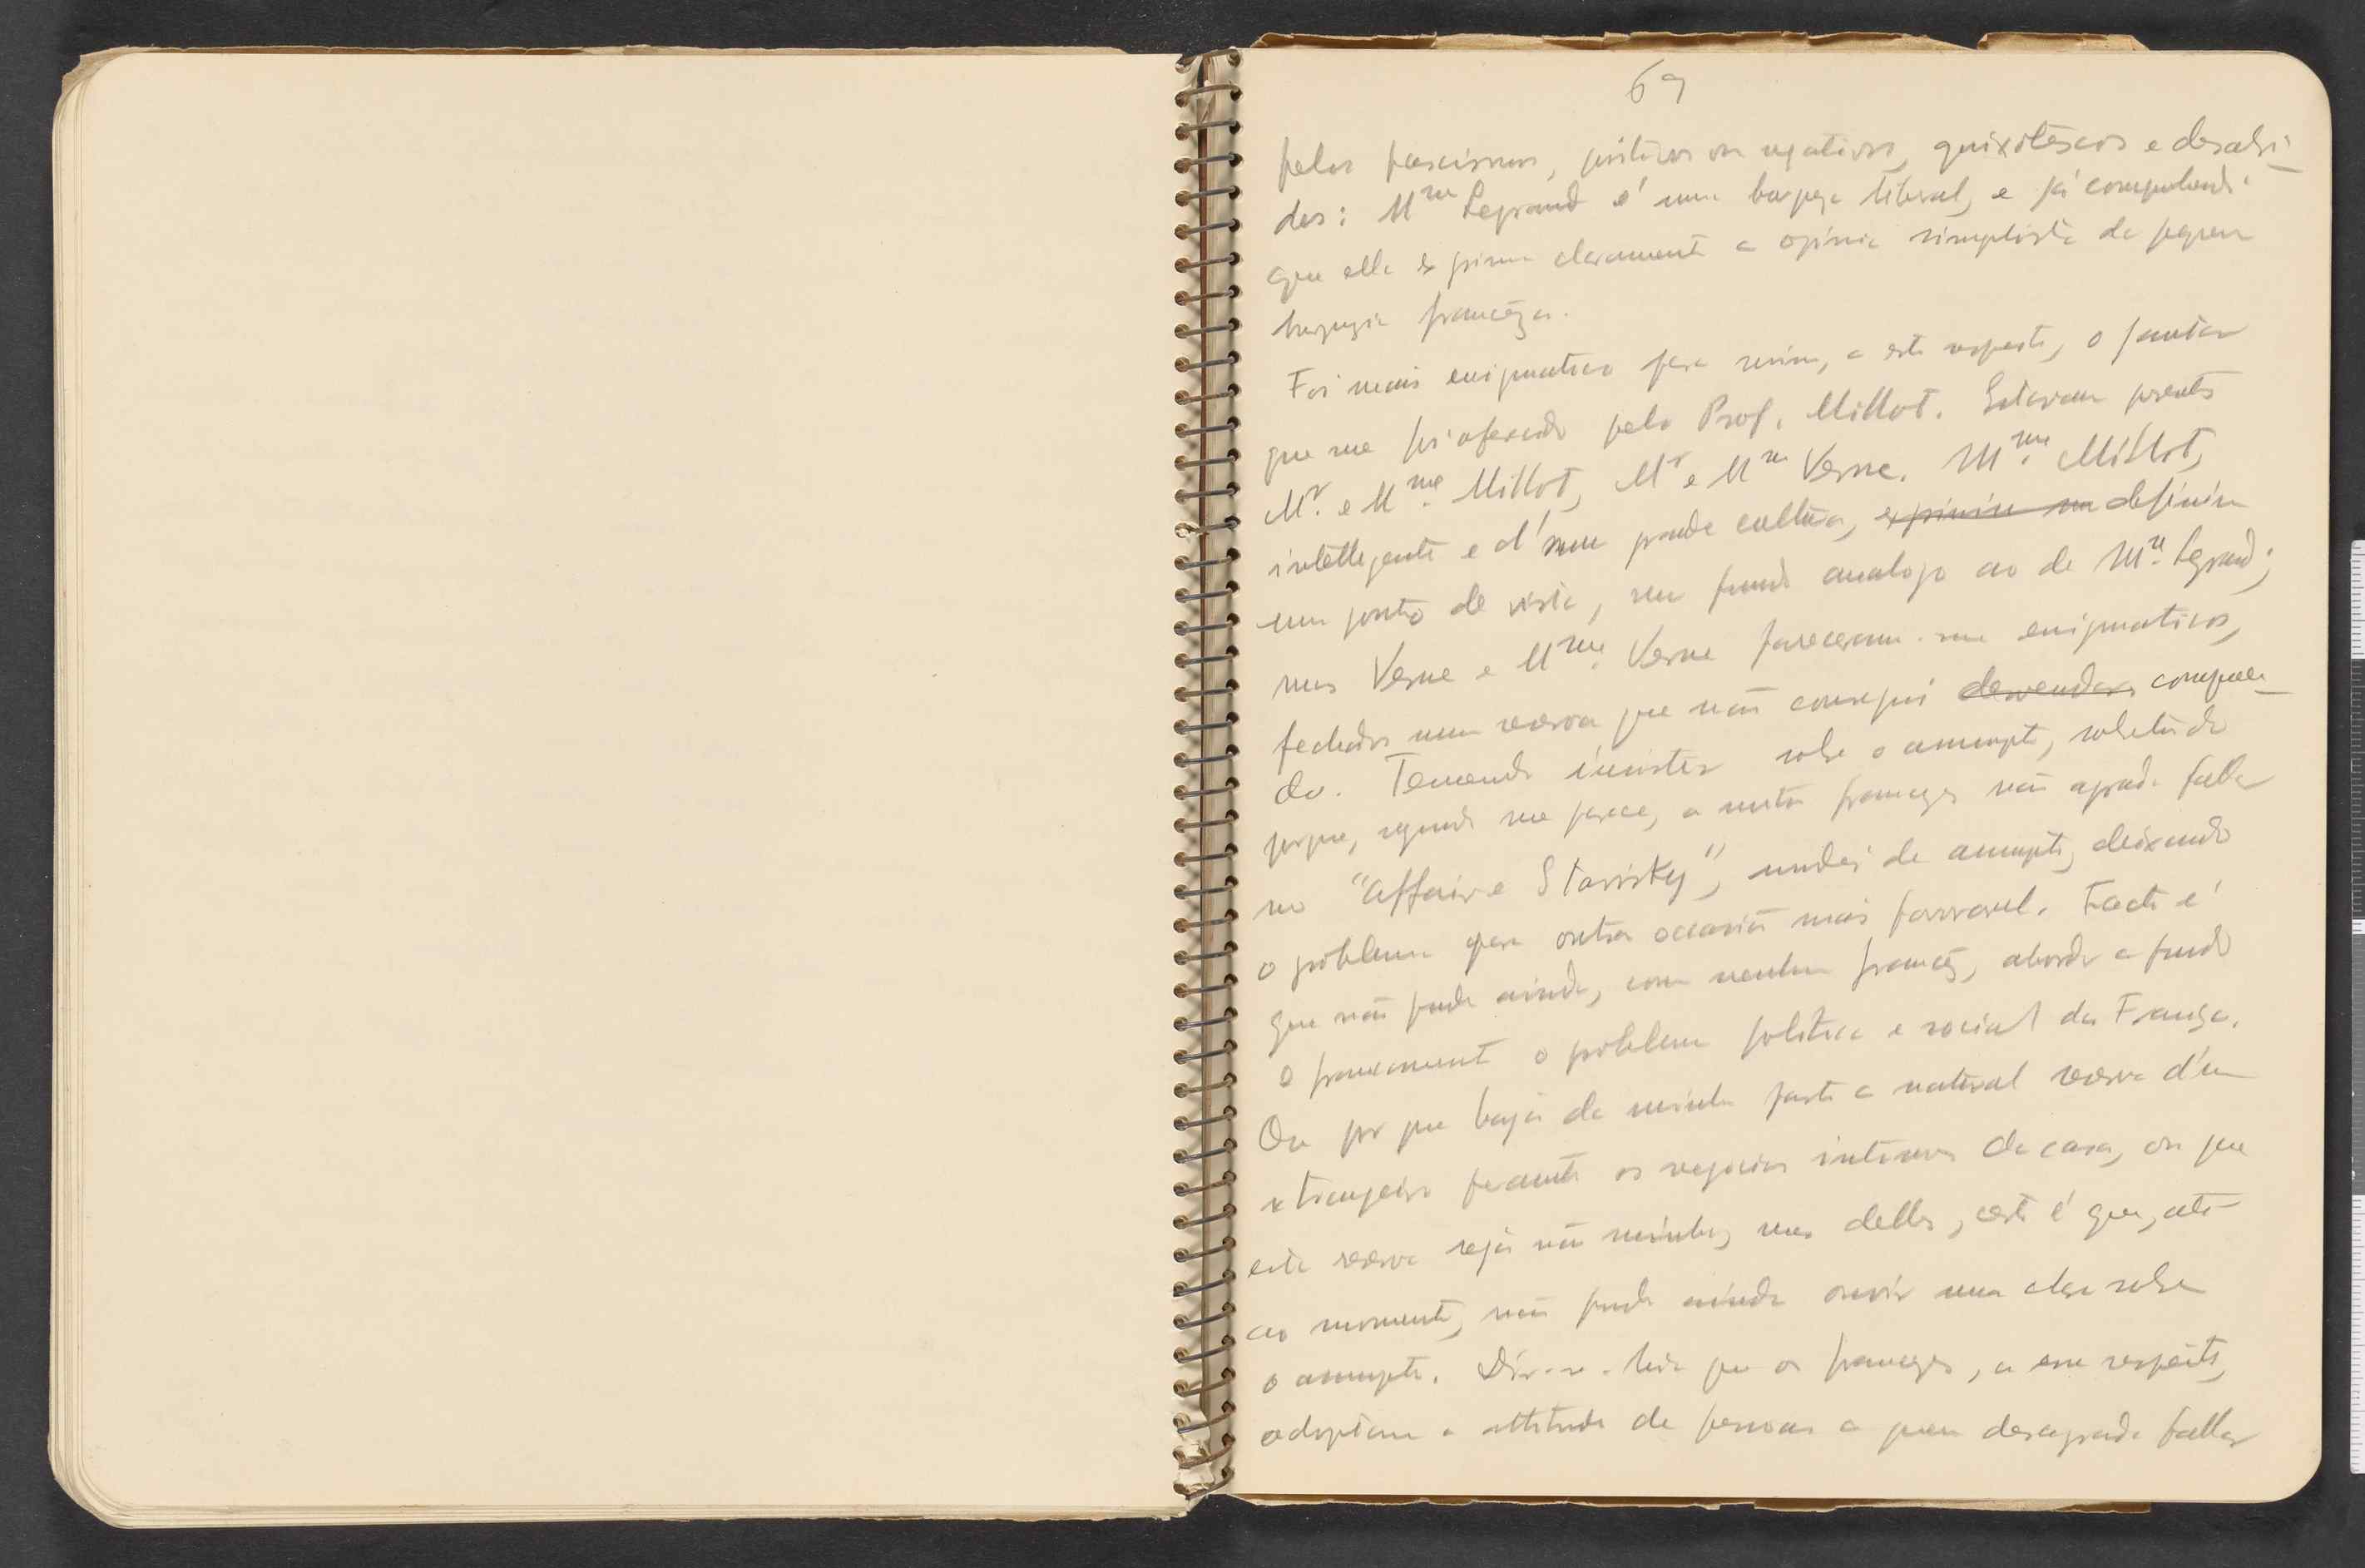 69
pelos fascismos, positivos ou negativos, quixotescos e desabri-
dos: Mme Legrand é uma burgeza liberal, e já comprehendi
que ella exprime claramente a opinião simplista da pequena
burguezia franceza.
Foi mais enigmatico para mim, a este respeito, o jantar
que me foi oferecido pelo Prof. Millot. Estavam presentes
Mr. e Mme. Millot, Mr e Mme Verne. Mme. Millot,
intelligente e d'uma grande cultura, exprimiu um definiu
um ponto de vista, no fundo analogo ao de Me. Legrand;
mas Verne e Mme. Verne pareceram-me enigmaticos,
fechados numa reserva que não consegui desvendar compreen-
do. Temendo insistir sobre o assumpto, sobretudo
porque, segundo me parece, a muitos francezes não agrada fallar
no "Affaire Stavisky", mudei de assumpto, deixando
o problema para outra occasião mais favoravel. Facto é
que não pude ainda, com nenhum francêz, abordar a fundo
o francamente o problema politico e social da França.
Ou por que haja da minha parte a natural reserva d'um
extrangeiro perante os negocios internos da casa, ou que
esta reserva seja não minha, mas delles, certo é que, até
ao momento, não pude ainda ouvir uma clara sobre
o assumpto. Dir-se-hia que os francezes, a esse respeito,
adoptam a attitude de pessoas a quem desagrada fallar